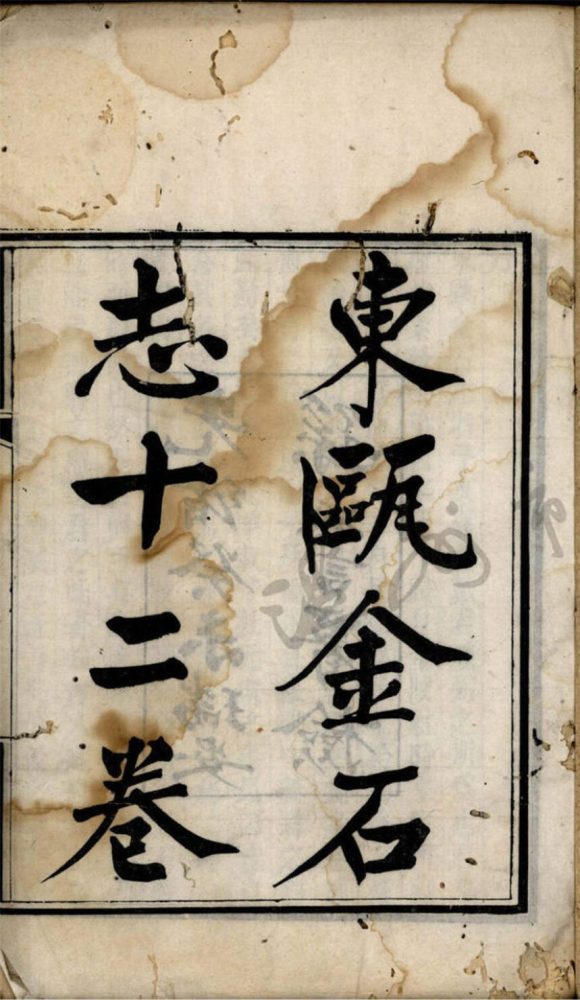 東甌金石
志十二卷